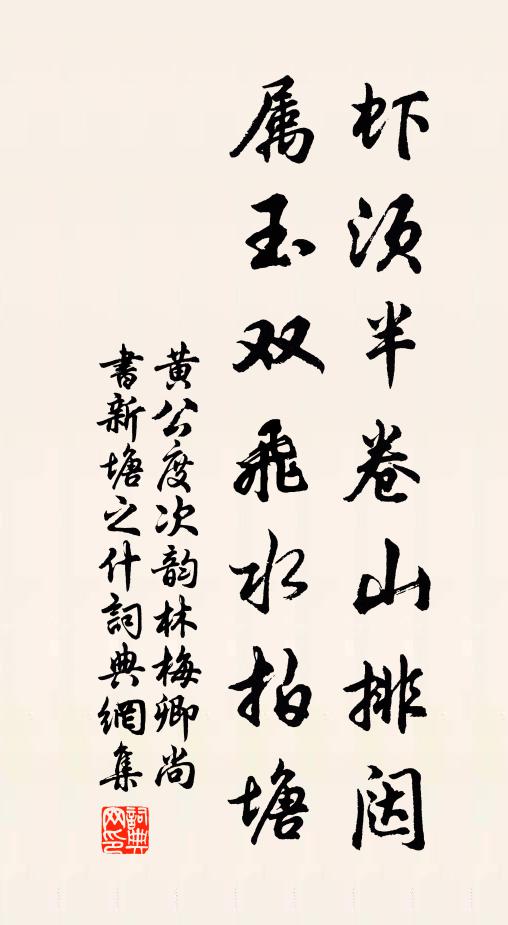 虾须半卷山排闼
属玉双飞水拍塘
黄公度次韵林梅卿尚
書新塘之什詞典網集
詞典网印